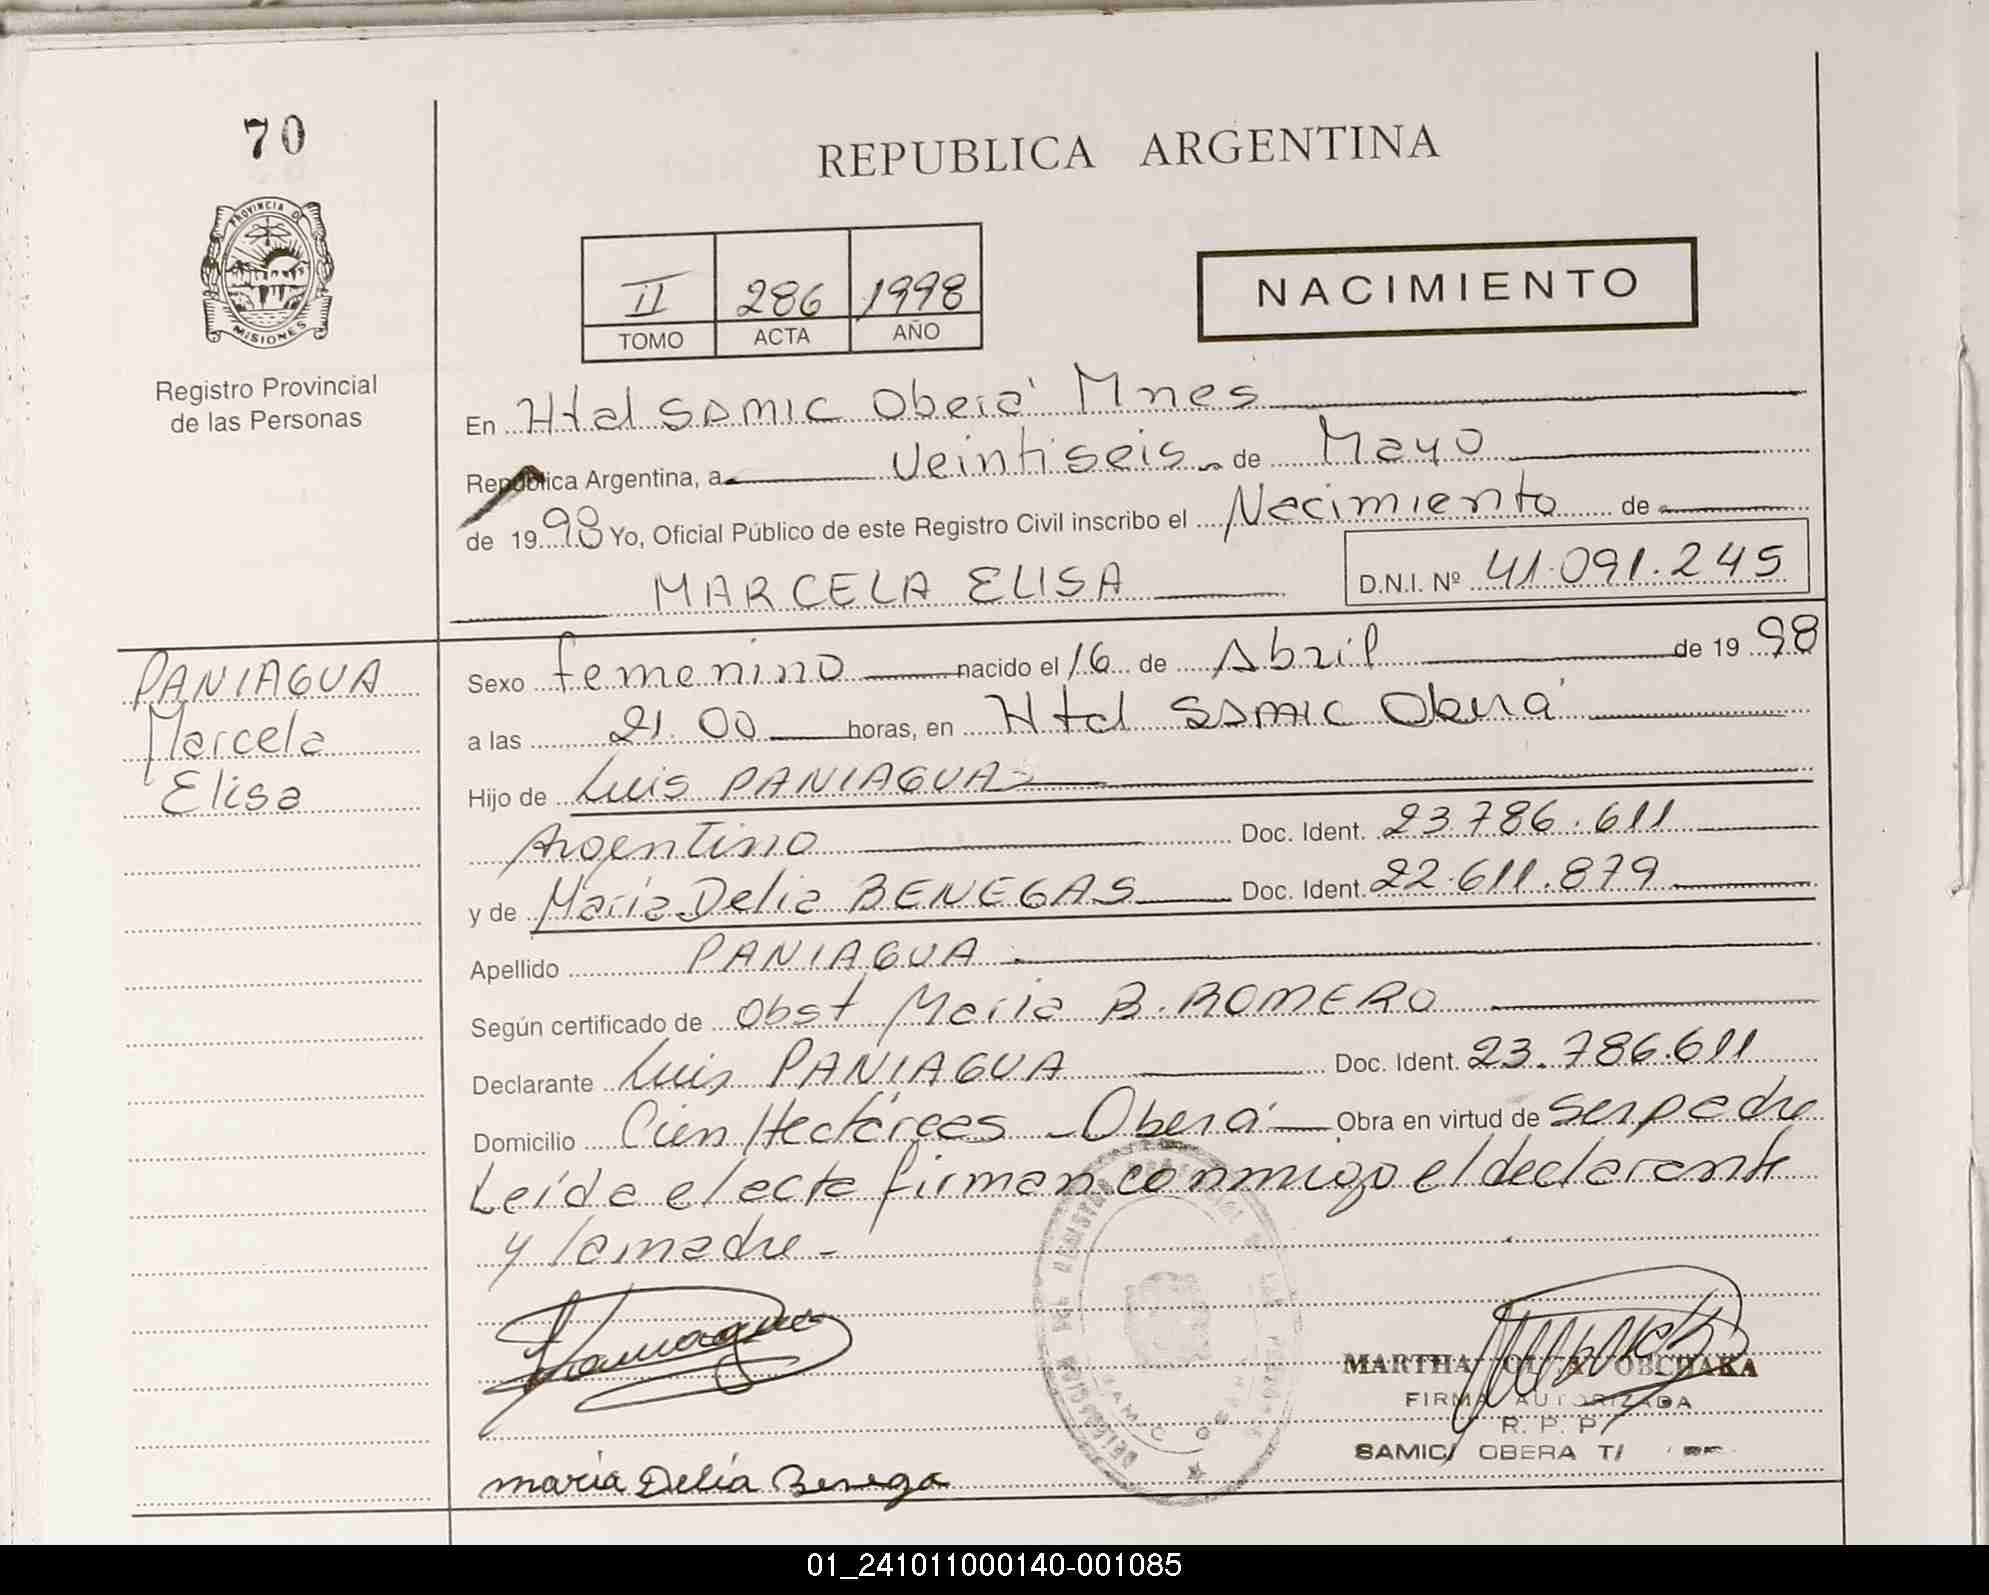 70
REPUBLICA ARGENTINA
PROVINCIA DE
MISIONES
Registro Provincial
de las Personas
II 286 1998
TOMO ACTA AÑO
NACIMIENTO
En Htal SAMIC Oberá Mnes
República Argentina, a Veintiseis de Mayo
de 1998 Yo, Oficial Público de este Registro Civil inscribo el Nacimiento de
MARCELA ELISA D.N.I. Nº 41.091.245
PANIAGUA
Marcela
Elisa
Sexo femenino nacido el 16 de Abril de 1998
a las 21.00 horas, en Htal SAMIC Oberá
Hijo de Luis PANIAGUA
Argentino Doc. Ident. 23.786.611
y de María Delia BENEGAS Doc. Ident. 22.611.879
Apellido PANIAGUA
Según certificado de Obst María B. ROMERO
Declarante Luis PANIAGUA Doc. Ident. 23.786.611
Domicilio Cien Hectáreas - Oberá Obra en virtud de ser padre
Leída el acta firman conmigo el declarante
y la madre -
MARTHA OBCHAKA
FIRMA AUTORIZADA
R. P. P.
SAMIC/ OBERA T/
maría Delia Benega
01_241011000140-001085